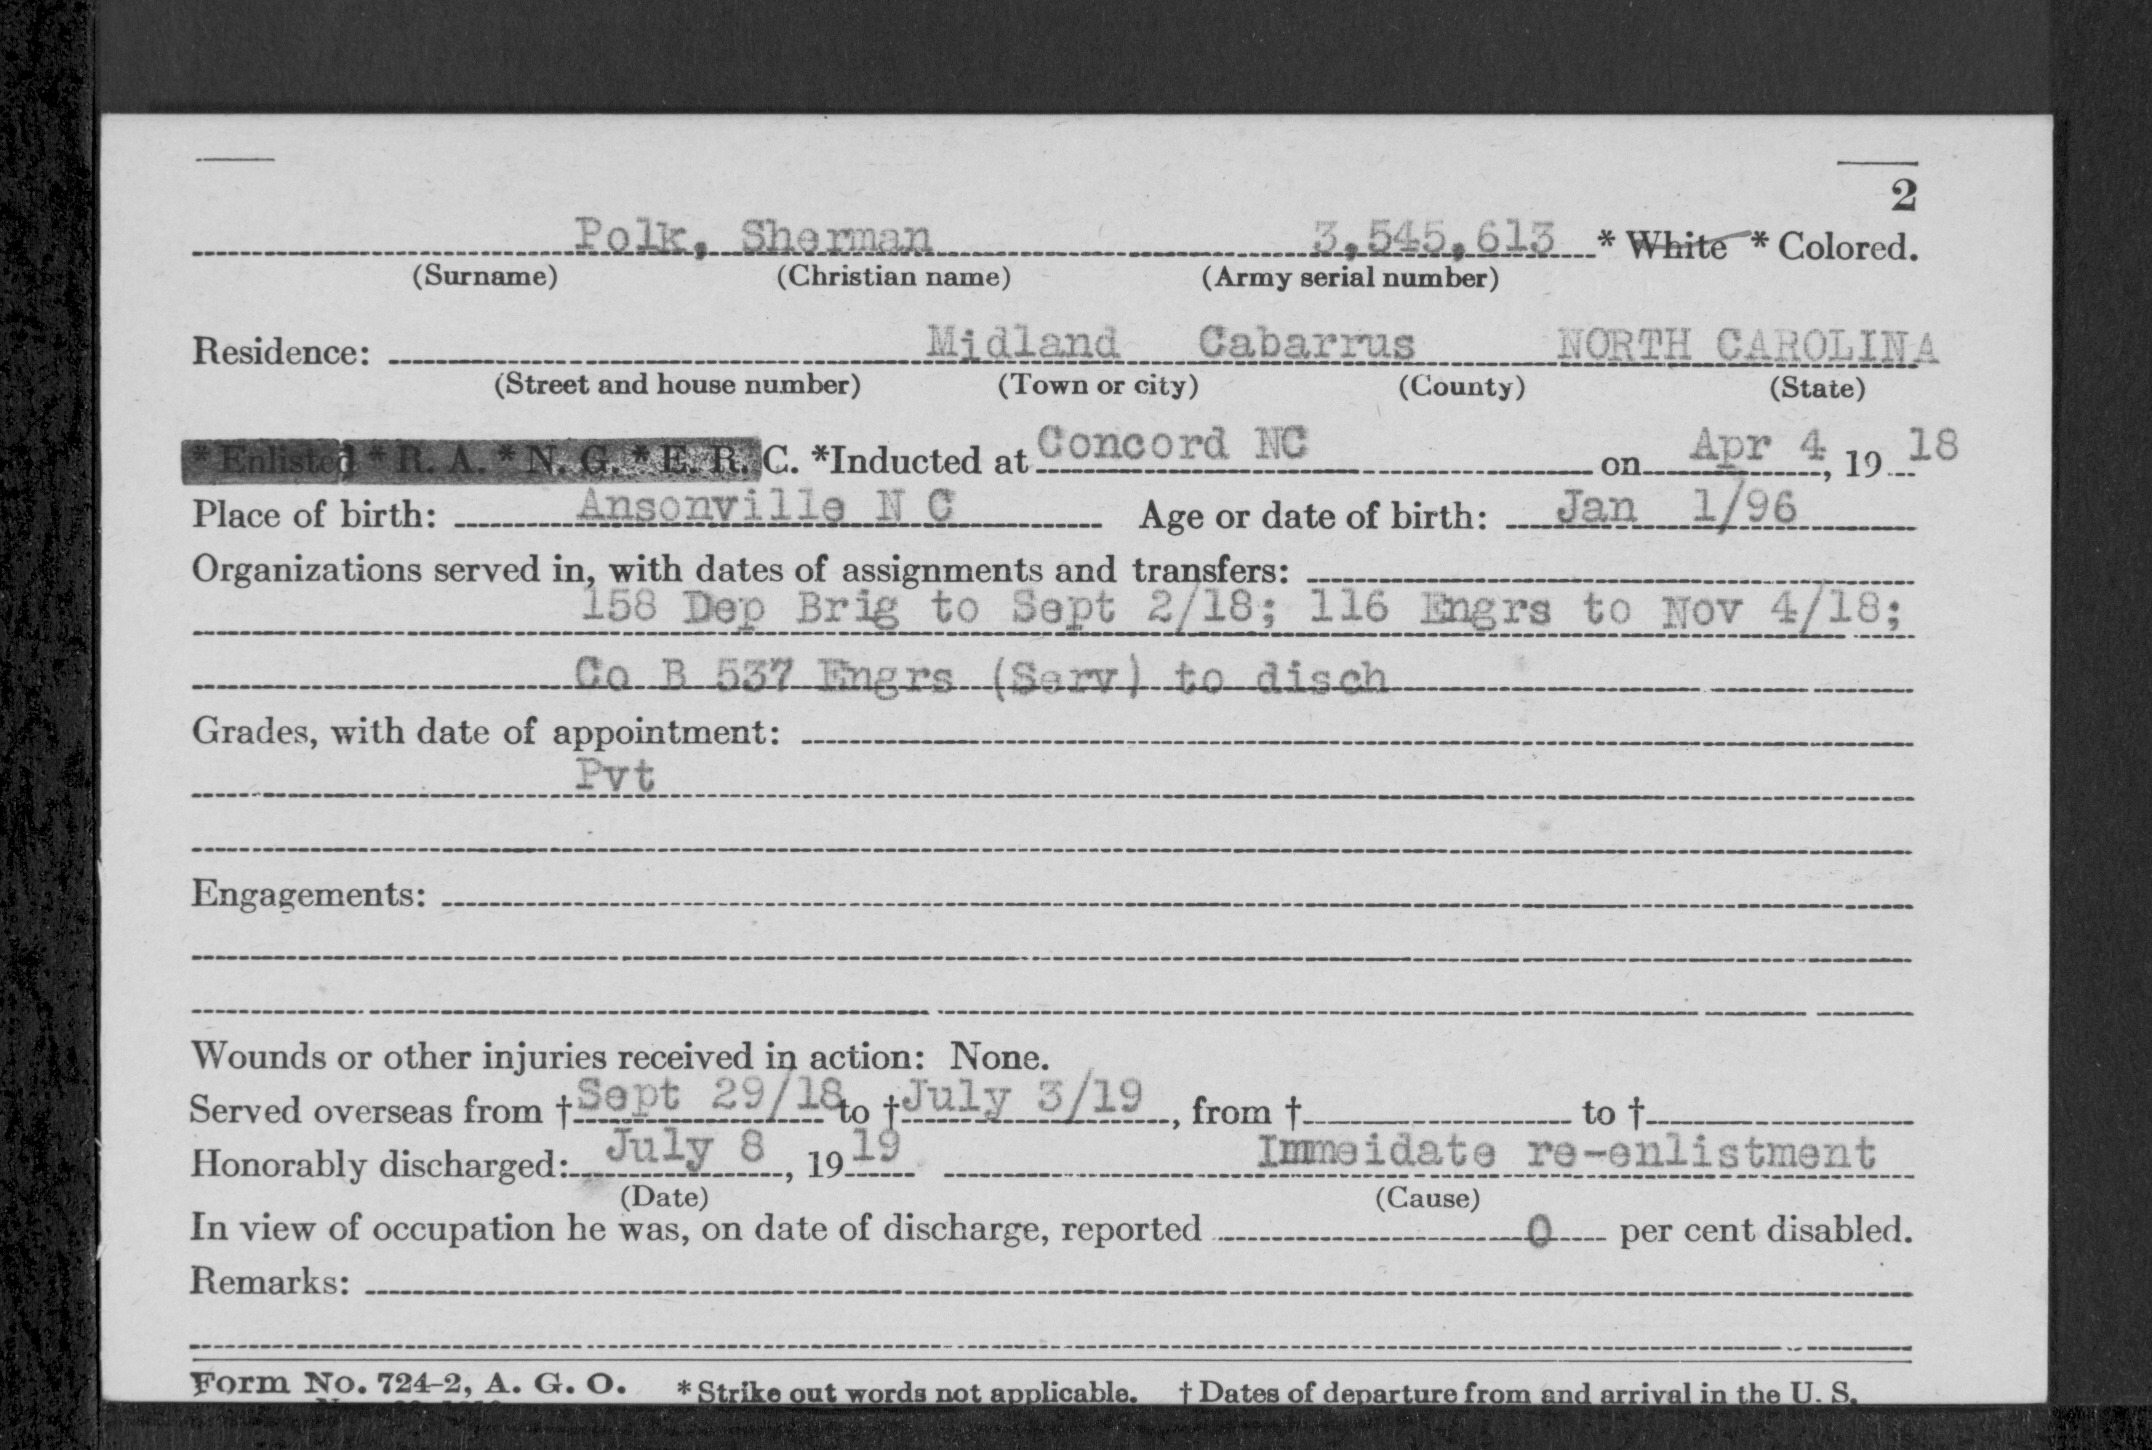 2
Polk, Sherman 3,545,613 * White * Colored.
(Surname) (Christian name) (Army serial number)
Residence: Midland Cabarrus NORTH CAROLINA
(Street and house number) (Town or city) (County) (State)
* Enlisted * R. A. * N. G. * E. R. C. *Inducted at Concord NC on Apr 4, 19 18
Place of birth: Ansonville N C Age or date of birth: Jan 1/96
Organizations served in, with dates of assignments and transfers:
158 Dep Brig to Sept 2/18; 116 Engrs to Nov 4/18;
Co B 537 Engrs (Serv) to disch
Grades, with date of appointment:
Pvt
Engagements:
Wounds or other injuries received in action: None.
Served overseas from † Sept 29/18 to † July 3/19, from † to †
Honorably discharged: July 8, 19 19 Immeidate re-enlistment
(Date) (Cause)
In view of occupation he was, on date of discharge, reported 0 per cent disabled.
Remarks:
Form No. 724-2, A. G. O. * Strike out words not applicable. † Dates of departure from and arrival in the U. S.